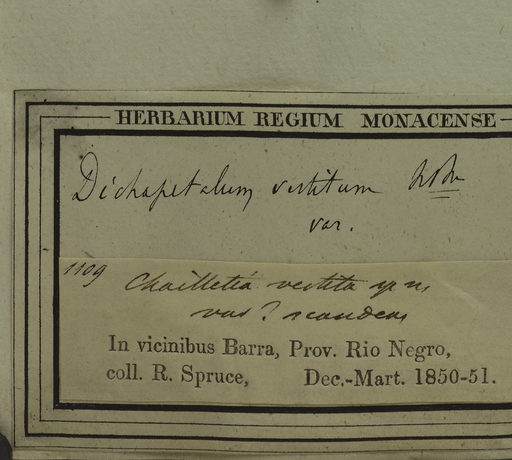 HERBARIUM REGIUM MONACENSE
Dichapetalum vestitum
var.
1109 Chailletia vestita
var? scandens
In vicinibus Barra, Prov. Rio Negro,
coll. R. Spruce, Dec.-Mart. 1850-51.